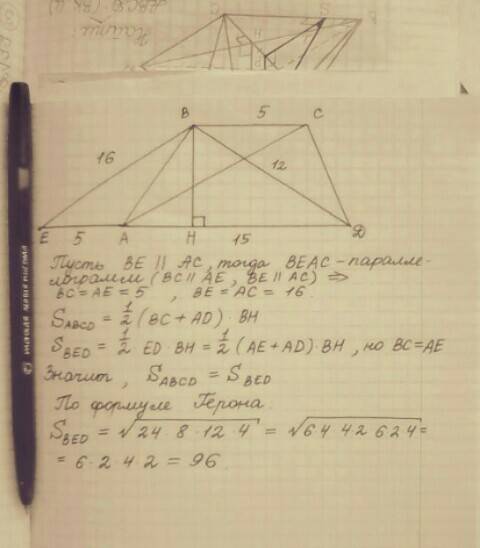 Найти:
B 5 C
16 12
E 5 A H 15 D
Пусть BE || AC, тогда BEAC - паралле-
лограмм (BC || AE, BE || AC) ⇒
BC = AE = 5 , BE = AC = 16.
S_ABCD = 1/2 (BC + AD) · BH
S_BED = 1/2 · ED · BH = 1/2 (AE + AD) · BH , но BC = AE
Значит, S_ABCD = S_BED
По формуле Герона:
S_BED = √(24 · 8 · 12 · 4) = √(6·4 · 4·2 · 6·2·4) =
= 6 · 2 · 4 · 2 = 96